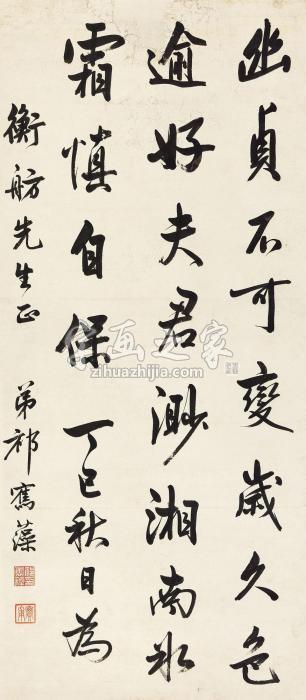 幽贞不可變歲久色
逾好夫君渺湘南冰
霜慎自保 丁巳秋日為
衡舫先生正 弟祁寯藻
字画之家
zihuazhijia.com